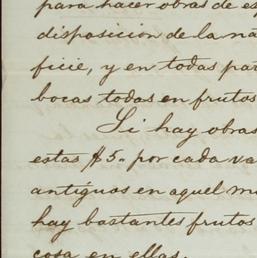 para hacer obras de es
disposicion de la na
ficie, y en todas par
bocas todas en frutos
Si hay obras
estas $5" por cada va
antiguos en aquel m
hay bastantes frutos
cosa en ellas.